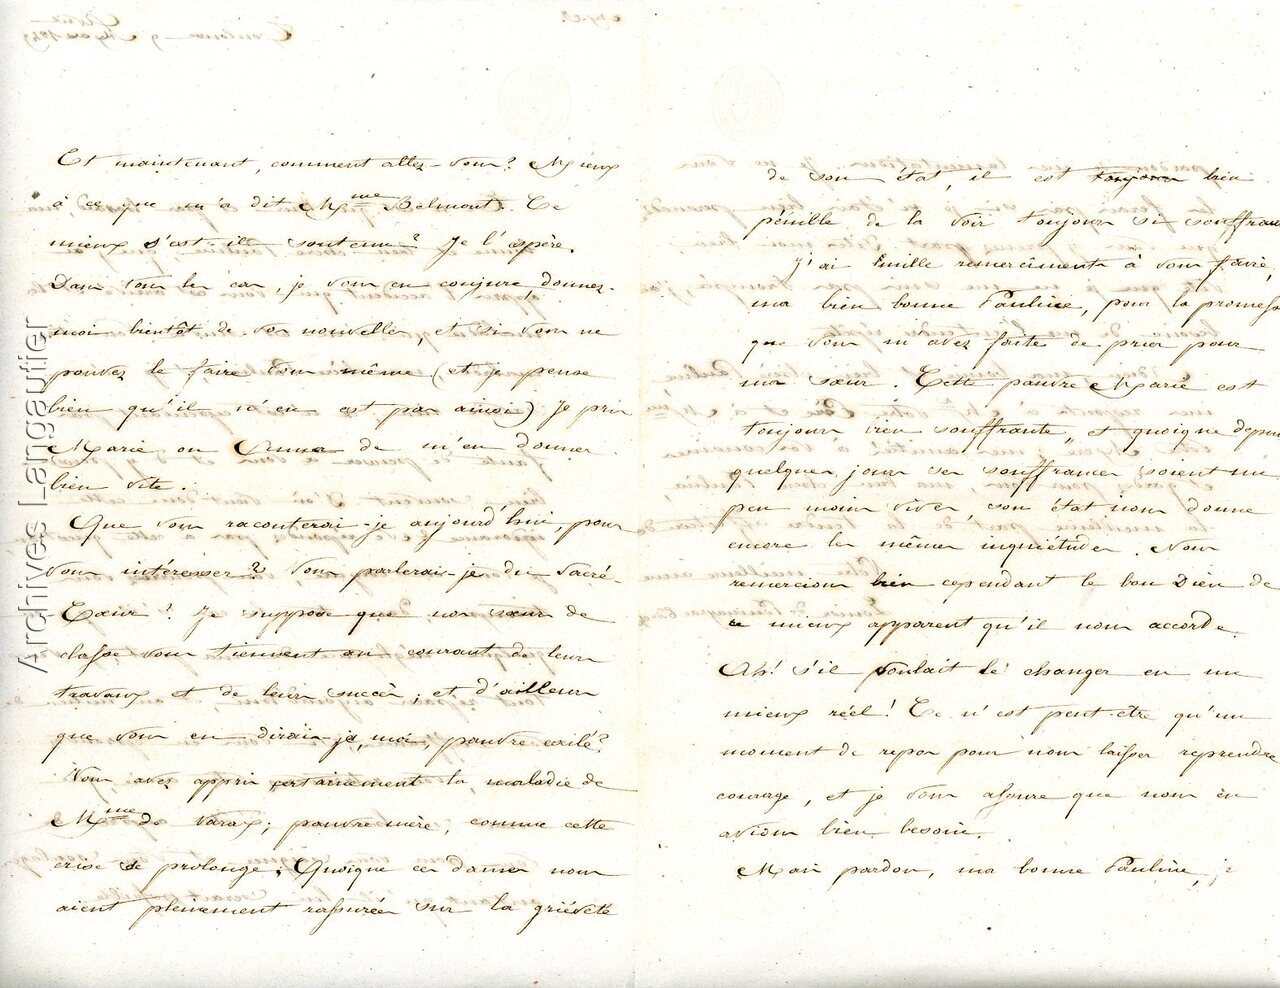 Et maintenant, comment allez-vous? Mieux
à ce que m'a dit Mme Belmont. Ce
mieux s'est-il soutenu? Je l'espère.
Dans tous les cas, je vous en conjure, donnez-
moi bientôt de vos nouvelles, et si vous ne
pouvez le faire vous même (et je pense
bien qu'il n'en est pas ainsi) je prie
Marie ou Anna de m'en donner
bien vite.
Que vous raconterai-je aujourd'hui, pour
vous intéresser? Vous parlerai-je du Sacré-
Cœur? Je suppose que nos sœurs de
classe vous tiennent au courant de leurs
travaux et de leurs succès; et d'ailleurs
que vous en dirais-je, moi, pauvre exilée?
Vous avez appris certainement la maladie de
Mme de Varax; pauvre mère, comme cette
crise se prolonge. Quoique ces dames nous
aient pleinement rassurées sur la grièveté
de son état, il est toujours bien
pénible de la voir toujours si souffrante
J'ai mille remerciments à vous faire,
ma bien bonne Pauline, pour la promesse
que vous m'avez faite de prier pour
ma sœur. Cette pauvre Marie est
toujours bien souffrante, et quoique depuis
quelques jours ses souffrances soient un
peu moins vives, son état nous donne
encore les mêmes inquiétudes. Nous
remercions bien cependant le bon Dieu de
ce mieux apparent qu'il nous accorde.
Ah! s'il voulait le changer en un
mieux réel! Ce n'est peut-être qu'un
moment de repos pour nous laisser reprendre
courage, et je vous assure que nous en
avions bien besoin.
Mais pardon, ma bonne Pauline, je
Archives Langautier